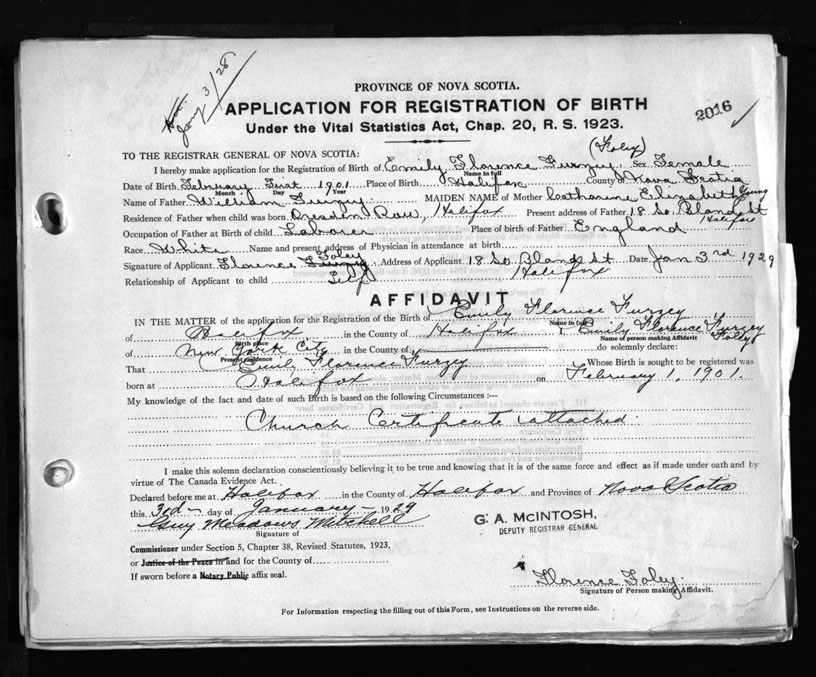 Jany 3/28
PROVINCE OF NOVA SCOTIA.
APPLICATION FOR REGISTRATION OF BIRTH
Under the Vital Statistics Act, Chap. 20, R. S. 1923.
2016
(Foley)
TO THE REGISTRAR GENERAL OF NOVA SCOTIA:
I hereby make application for the Registration of Birth of Emily Florence Furzey Sex Female
Name in full
Date of Birth February First 1901 Place of Birth Halifax County of Nova Scotia
Month Day Year
Name of Father William Furzey MAIDEN NAME of Mother Catharine Elizabeth Young
Residence of Father when child was born Row, Halifax Present address of Father 18 So. Bland St Halifax
Occupation of Father at Birth of child Laborer Place of birth of Father England
Race White Name and present address of Physician in attendance at birth
Signature of Applicant Florence Furzey Foley Address of Applicant 18 So Bland St Halifax Date Jan 3rd 1929
Relationship of Applicant to child Self
AFFIDAVIT
IN THE MATTER of the application for the Registration of the Birth of Emily Florence Furzey
Name in full
of Halifax in the County of Halifax I, Emily Florence Furzey Foley
Birth place Name of person making Affidavit
of New York City in the County of do solemnly declare:
Present residence
That Emily Florence Furzey Whose Birth is sought to be registered was
born at Halifax on February 1, 1901.
My knowledge of the fact and date of such Birth is based on the following Circumstances :—
Church Certificate attached.
I make this solemn declaration conscientiously believing it to be true and knowing that it is of the same force and effect as if made under oath and by
virtue of The Canada Evidence Act.
Declared before me at Halifax in the County of Halifax and Province of Nova Scotia
this 3rd day of January 1929
Guy Meadows Mitchell
Signature of
G. A. McINTOSH,
DEPUTY REGISTRAR GENERAL
Commissioner under Section 5, Chapter 38, Revised Statutes, 1923,
or Justice of the Peace in and for the County of
If sworn before a Notary Public affix seal.
Florence Foley.
Signature of Person making Affidavit.
For Information respecting the filling out of this Form, see Instructions on the reverse side.